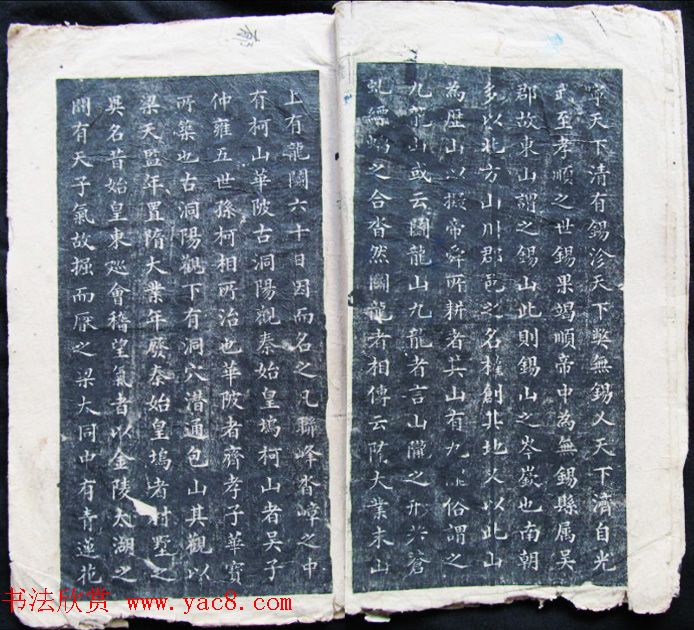 寧天下清有錫沴天下弊無錫乂天下濟自光
武至孝順之世錫果竭順帝中為無錫縣属吳
郡故東山謂之錫山此則錫山之岑嶔也南朝
多以北方山川郡邑之名權創其地又以此山
為歴山以擬帝舜所耕者其山有九隴俗謂之
九龍山或云鬬龍山九龍者言山隴之形若蒼
虬縹螭之合沓然鬬龍者相傳云隋大業末山
上有龍鬬六十日因而名之凡聯峰沓嶂之中
有柯山華陂古洞陽觀秦始皇塢柯山者吳子
仲雍五世孫柯相所治也華陂者齊孝子華寳
所築也古洞陽觀下有洞穴潛通包山其觀以
梁天監年置隋大業年廢秦始皇塢者村墅之
異名昔始皇東巡會稽望氣者以金陵太湖之
間有天子氣故掘而厭之梁大同中有青蓮花
书法欣赏 www.yac8.com